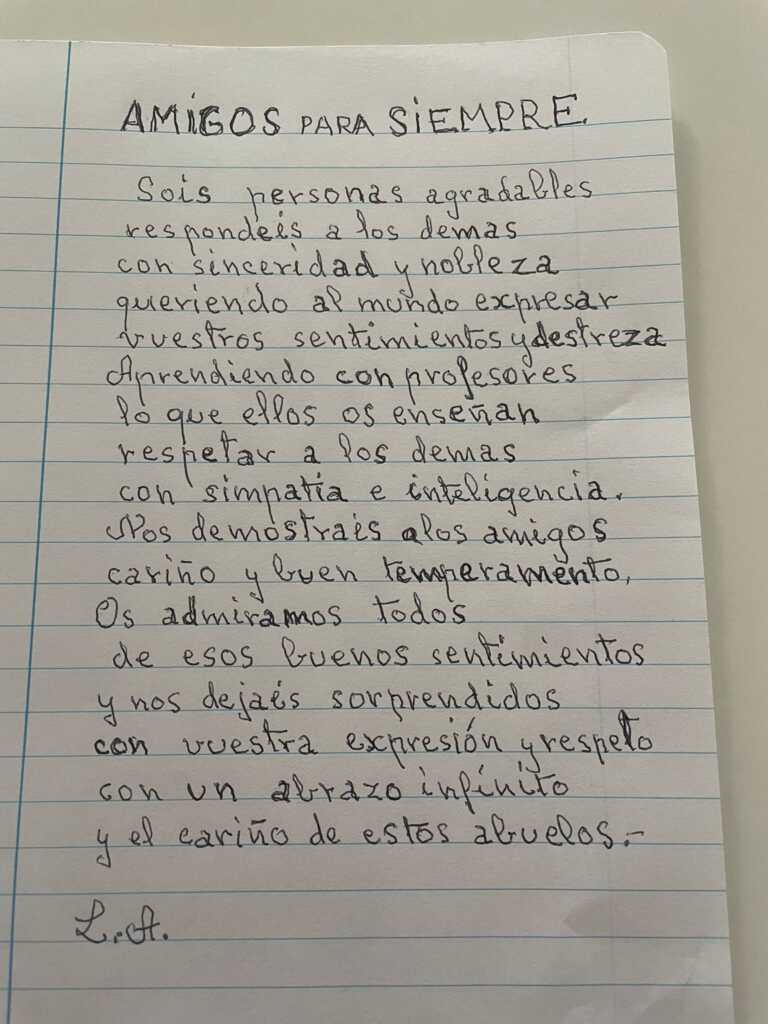 AMiGOS PARA SiEMPRE.
Sois personas agradables
respondeis a los demas
con sinceridad y nobleza
queriendo al mundo expresar
vuestros sentimientos y destreza
Aprendiendo con profesores
lo que ellos os enseñan
respetar a los demas
con simpatia e inteligencia.
Nos demostrais a los amigos
cariño y buen temperamento,
Os admiramos todos
de esos buenos sentimientos
y nos dejais sorprendidos
con vuestra expresión y respeto
con un abrazo infinito
y el cariño de estos abuelos.-
L.A.